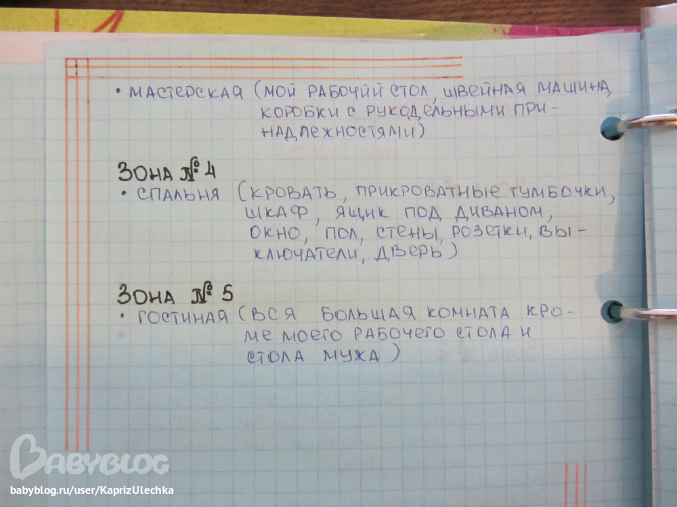 • МАСТЕРСКАЯ (МОЙ РАБОЧИЙ СТОЛ, ШВЕЙНАЯ МАШИНА,
КОРОБКИ С РУКОДЕЛЬНЫМИ ПРИ-
НАДЛЕЖНОСТЯМИ)
ЗОНА №4
• СПАЛЬНЯ (КРОВАТЬ, ПРИКРОВАТНЫЕ ТУМБОЧКИ,
ШКАФ, ЯЩИК ПОД ДИВАНОМ,
ОКНО, ПОЛ, СТЕНЫ, РОЗЕТКИ, ВЫ-
КЛЮЧАТЕЛИ, ДВЕРЬ)
ЗОНА №5
• ГОСТИНАЯ (ВСЯ БОЛЬШАЯ КОМНАТА КРО-
МЕ МОЕГО РАБОЧЕГО СТОЛА И
СТОЛА МУЖА)
BABYBLOG
babyblog.ru/user/KaprizUlechka